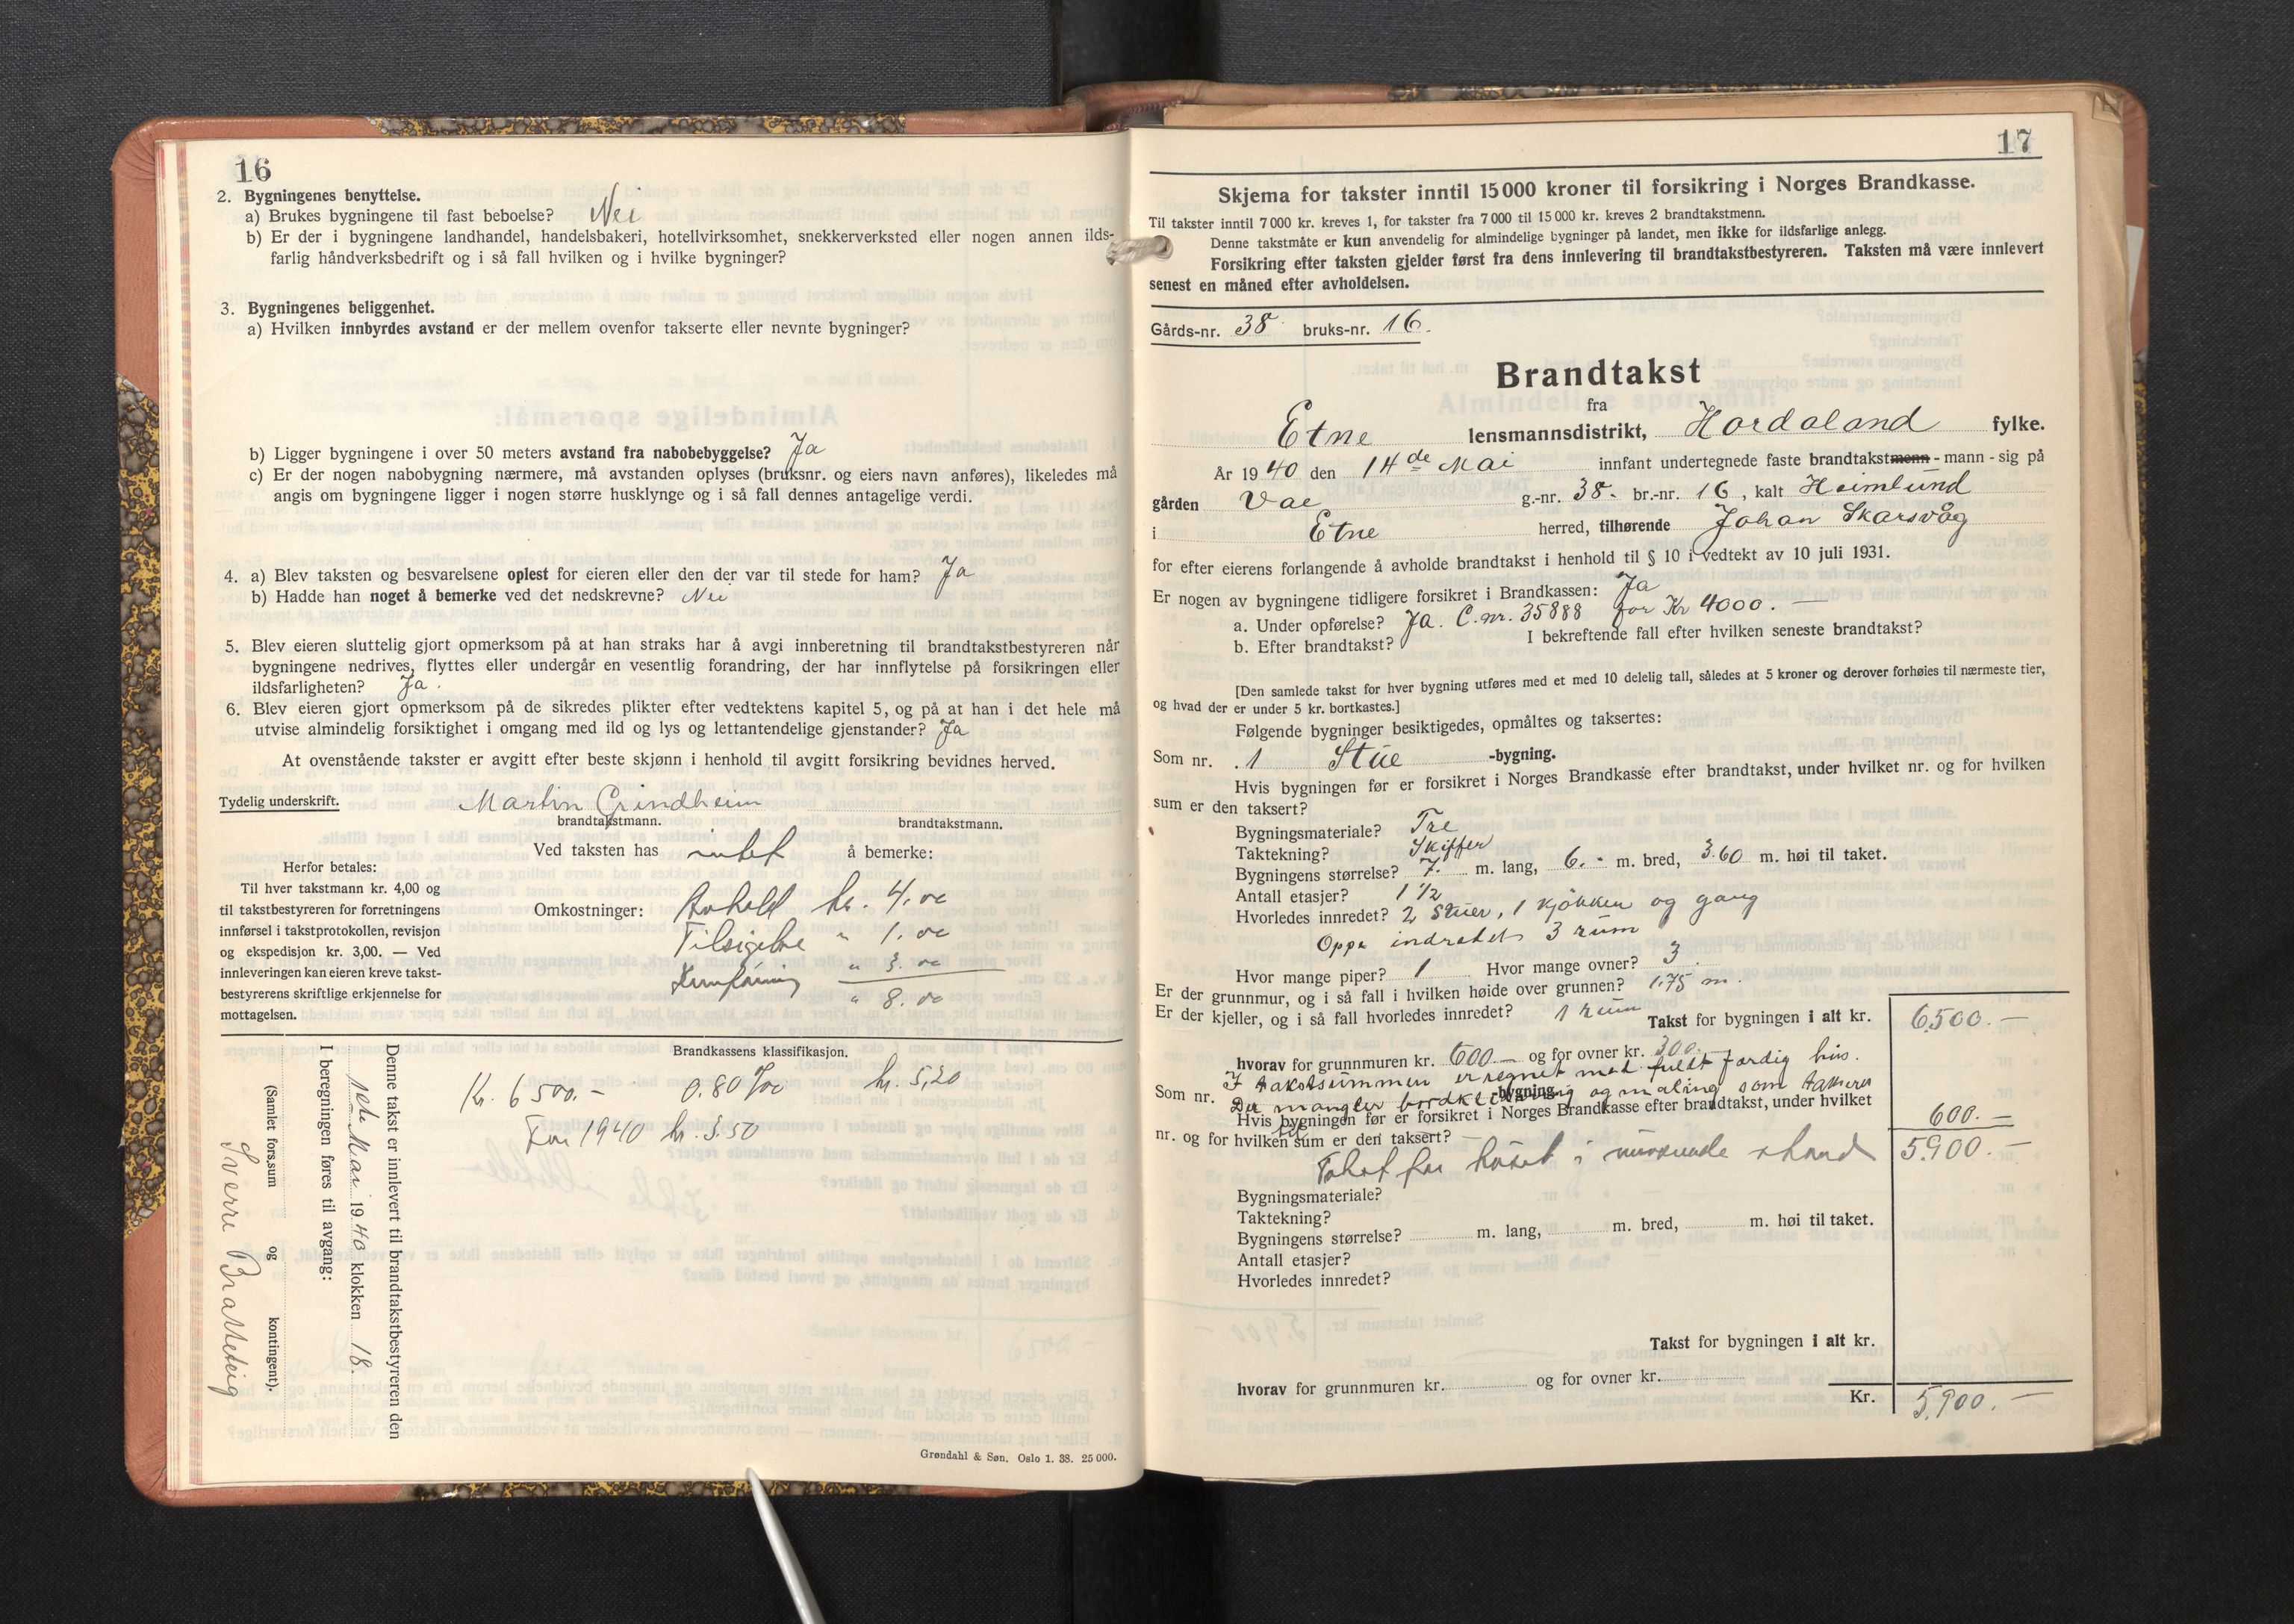 16
2. Bygningenes benyttelse.
a) Brukes bygningene til fast beboelse? Nei
b) Er der i bygningene landhandel, handelsbakeri, hotellvirksomhet, snekkerverksted eller nogen annen ilds-
farlig håndverksbedrift og i så fall hvilken og i hvilke bygninger?
3. Bygningenes beliggenhet.
a) Hvilken innbyrdes avstand er der mellem ovenfor takserte eller nevnte bygninger?
b) Ligger bygningene i over 50 meters avstand fra nabobebyggelse? Ja
c) Er der nogen nabobygning nærmere, må avstanden oplyses (bruksnr. og eiers navn anføres), likeledes må
angis om bygningene ligger i nogen større husklynge og i så fall dennes antagelige verdi.
4. a) Blev taksten og besvarelsene oplest for eieren eller den der var til stede for ham? Ja
b) Hadde han noget å bemerke ved det nedskrevne? Nei
5. Blev eieren sluttelig gjort opmerksom på at han straks har å avgi innberetning til brandtakstbestyreren når
bygningene nedrives, flyttes eller undergår en vesentlig forandring, der har innflytelse på forsikringen eller
ildsfarligheten? Ja.
6. Blev eieren gjort opmerksom på de sikredes plikter efter vedtektens kapitel 5, og på at han i det hele må
utvise almindelig forsiktighet i omgang med ild og lys og lettantendelige gjenstander? Ja
At ovenstående takster er avgitt efter beste skjønn i henhold til avgitt forsikring bevidnes herved.
Tydelig underskrift. Martin Grindheim
brandtakstmann. brandtakstmann.
Ved taksten has intet å bemerke:
Herfor betales:
Til hver takstmann kr. 4,00 og
til takstbestyreren for forretningens
innførsel i takstprotokollen, revisjon
og ekspedisjon kr. 3,00. — Ved
innleveringen kan eieren kreve takst-
bestyrerens skriftlige erkjennelse for
mottagelsen.
Omkostninger: Avhold kr. 4.00
Tilsigelse " 1.00
" 3.00
" 8.00
Brandkassens klassifikasjon.
Kr. 6500.- 0.80 %00 kr. 5,20
For 1940 kr. 3.50
Denne takst er innlevert til brandtakstbestyreren den
Mai 1940 klokken 18.
I beregningen føres til avgang:
(Samlet fors.sum og kontingent).
Sverre Bratteteig
Grøndahl & Søn. Oslo 1. 38. 25 000.
17
Skjema for takster inntil 15 000 kroner til forsikring i Norges Brandkasse.
Til takster inntil 7 000 kr. kreves 1, for takster fra 7 000 til 15 000 kr. kreves 2 brandtakstmenn.
Denne takstmåte er kun anvendelig for almindelige bygninger på landet, men ikke for ildsfarlige anlegg.
Forsikring efter taksten gjelder først fra dens innlevering til brandtakstbestyreren. Taksten må være innlevert
senest en måned efter avholdelsen.
Gårds-nr. 38 bruks-nr. 16.
Brandtakst
fra
Etne lensmannsdistrikt, Hordaland fylke.
År 1940 den 14de Mai innfant undertegnede faste brandtakstmenn - mann - sig på
gården Vae g.-nr. 38. br.-nr. 16, kalt Heimlund
i Etne herred, tilhørende Johan Skarsvåg
for efter eierens forlangende å avholde brandtakst i henhold til § 10 i vedtekt av 10 juli 1931.
Er nogen av bygningene tidligere forsikret i Brandkassen: Ja
a. Under opførelse? Ja. C.nr. 35888 for Kr 4000.—
b. Efter brandtakst? I bekreftende fall efter hvilken seneste brandtakst?
[Den samlede takst for hver bygning utføres med et med 10 delelig tall, således at 5 kroner og derover forhøies til nærmeste tier,
og hvad der er under 5 kr. bortkastes.]
Følgende bygninger besiktigedes, opmåltes og taksertes:
Som nr. 1 Stue -bygning.
Hvis bygningen før er forsikret i Norges Brandkasse efter brandtakst, under hvilket nr. og for hvilken
sum er den taksert?
Bygningsmateriale? Tre
Taktekning? Skiffer
Bygningens størrelse? 7. m. lang, 6. - m. bred, 3.60 m. høi til taket.
Antall etasjer? 1 1/2
Hvorledes innredet? 2 Stuer, 1 kjøkken og gang
Oppe indredet 3 rum
Hvor mange piper? 1 Hvor mange ovner? 3
Er der grunnmur, og i så fall i hvilken høide over grunnen? 1.75 m.
Er der kjeller, og i så fall hvorledes innredet? 1 rum
Takst for bygningen i alt kr. 6500.—
hvorav for grunnmuren kr. 600.— og for ovner kr. 300.—
I takstsummen er regnet med fuldt færdig hus.
Som nr. -bygning.
Der mangler bordklædning og maling som takseres
til 600.—
Hvis bygningen før er forsikret i Norges Brandkasse efter brandtakst, under hvilket
nr. og for hvilken sum er den taksert?
Takst for huset i nuværende stand 5900.—
Bygningsmateriale?
Taktekning?
Bygningens størrelse? m. lang, m. bred, m. høi til taket.
Antall etasjer?
Hvorledes innredet?
Takst for bygningen i alt kr.
hvorav for grunnmuren kr. og for ovner kr.
Kr. 5,900.—